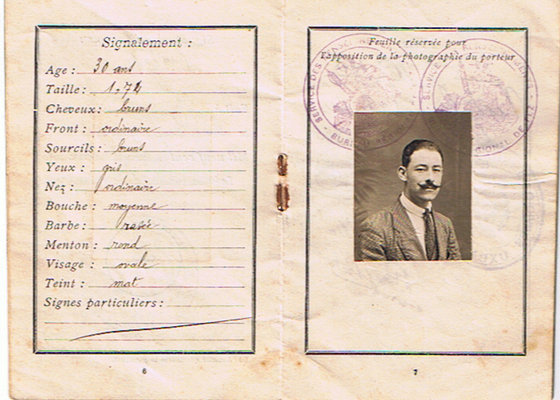 Signalement :
Age : 30 ans
Taille : 1.72
Cheveux : bruns
Front : ordinaire
Sourcils : bruns
Yeux : gris
Nez : ordinaire
Bouche : moyenne
Barbe : rasée
Menton : rond
Visage : ovale
Teint : mat
Signes particuliers :
6
Feuille réservée pour
l'apposition de la photographie du porteur
7